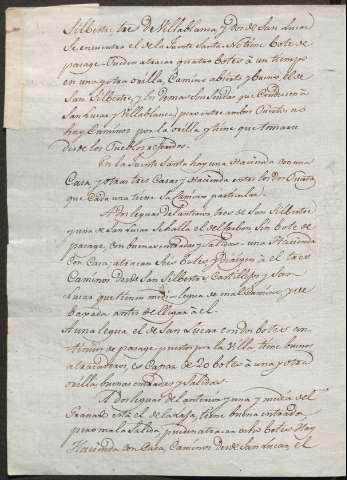 Silbestre, tres de Villablanca, y dos de San Lucar
se encuentra el de la fuente Santa No tiene bote de
pasage Pueden atracar quatro botes à un tiempo
en una y otra orilla, Camino abierto y bueno, el de
San Silbestre, y los demas son sendas que conducen à
San Lucar y Villablanca, pero entre ambos Puertos no
hay Caminos por la orilla y tiene que tomarse
desde los Pueblos referidos.
En la fuente Santa hay una Hacienda con una
Casa y otras tres Casas y Hacienda entre los dos Puertos
que cada una tiene su Camino particular.
A dos leguas del anterior tres de San Silbestre
y una de San Lucar se halla el del Sin bote de
pasage, con buenas entradas y salidas una Hacienda
con Casa, atracan Seis botes y dirigen à el tres
Caminos desde San Silbestre Castillejos y San
Lucar que tienen media legua de mal Camino, y de
bajada antes de llegar à el.
A una legua el de San Lucar con dos botes con
de pasage puesto por la Villa, tiene buenos
atracaderos, es Capaz de 20 botes à una y otra
orilla, buenas entradas y Salidas.
A dos leguas del anterior y una y media del
Granado esta el de la Laja, tiene buena entrada
pero mala Salida, pueden atracar ocho botes Hay
Hacienda con Casa, Caminos desde San Lucar, el